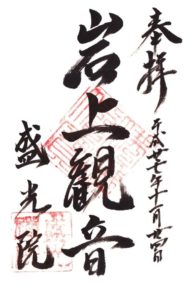 奉拝
平成廿七年十一月廿四日
岩上觀音
盛光院